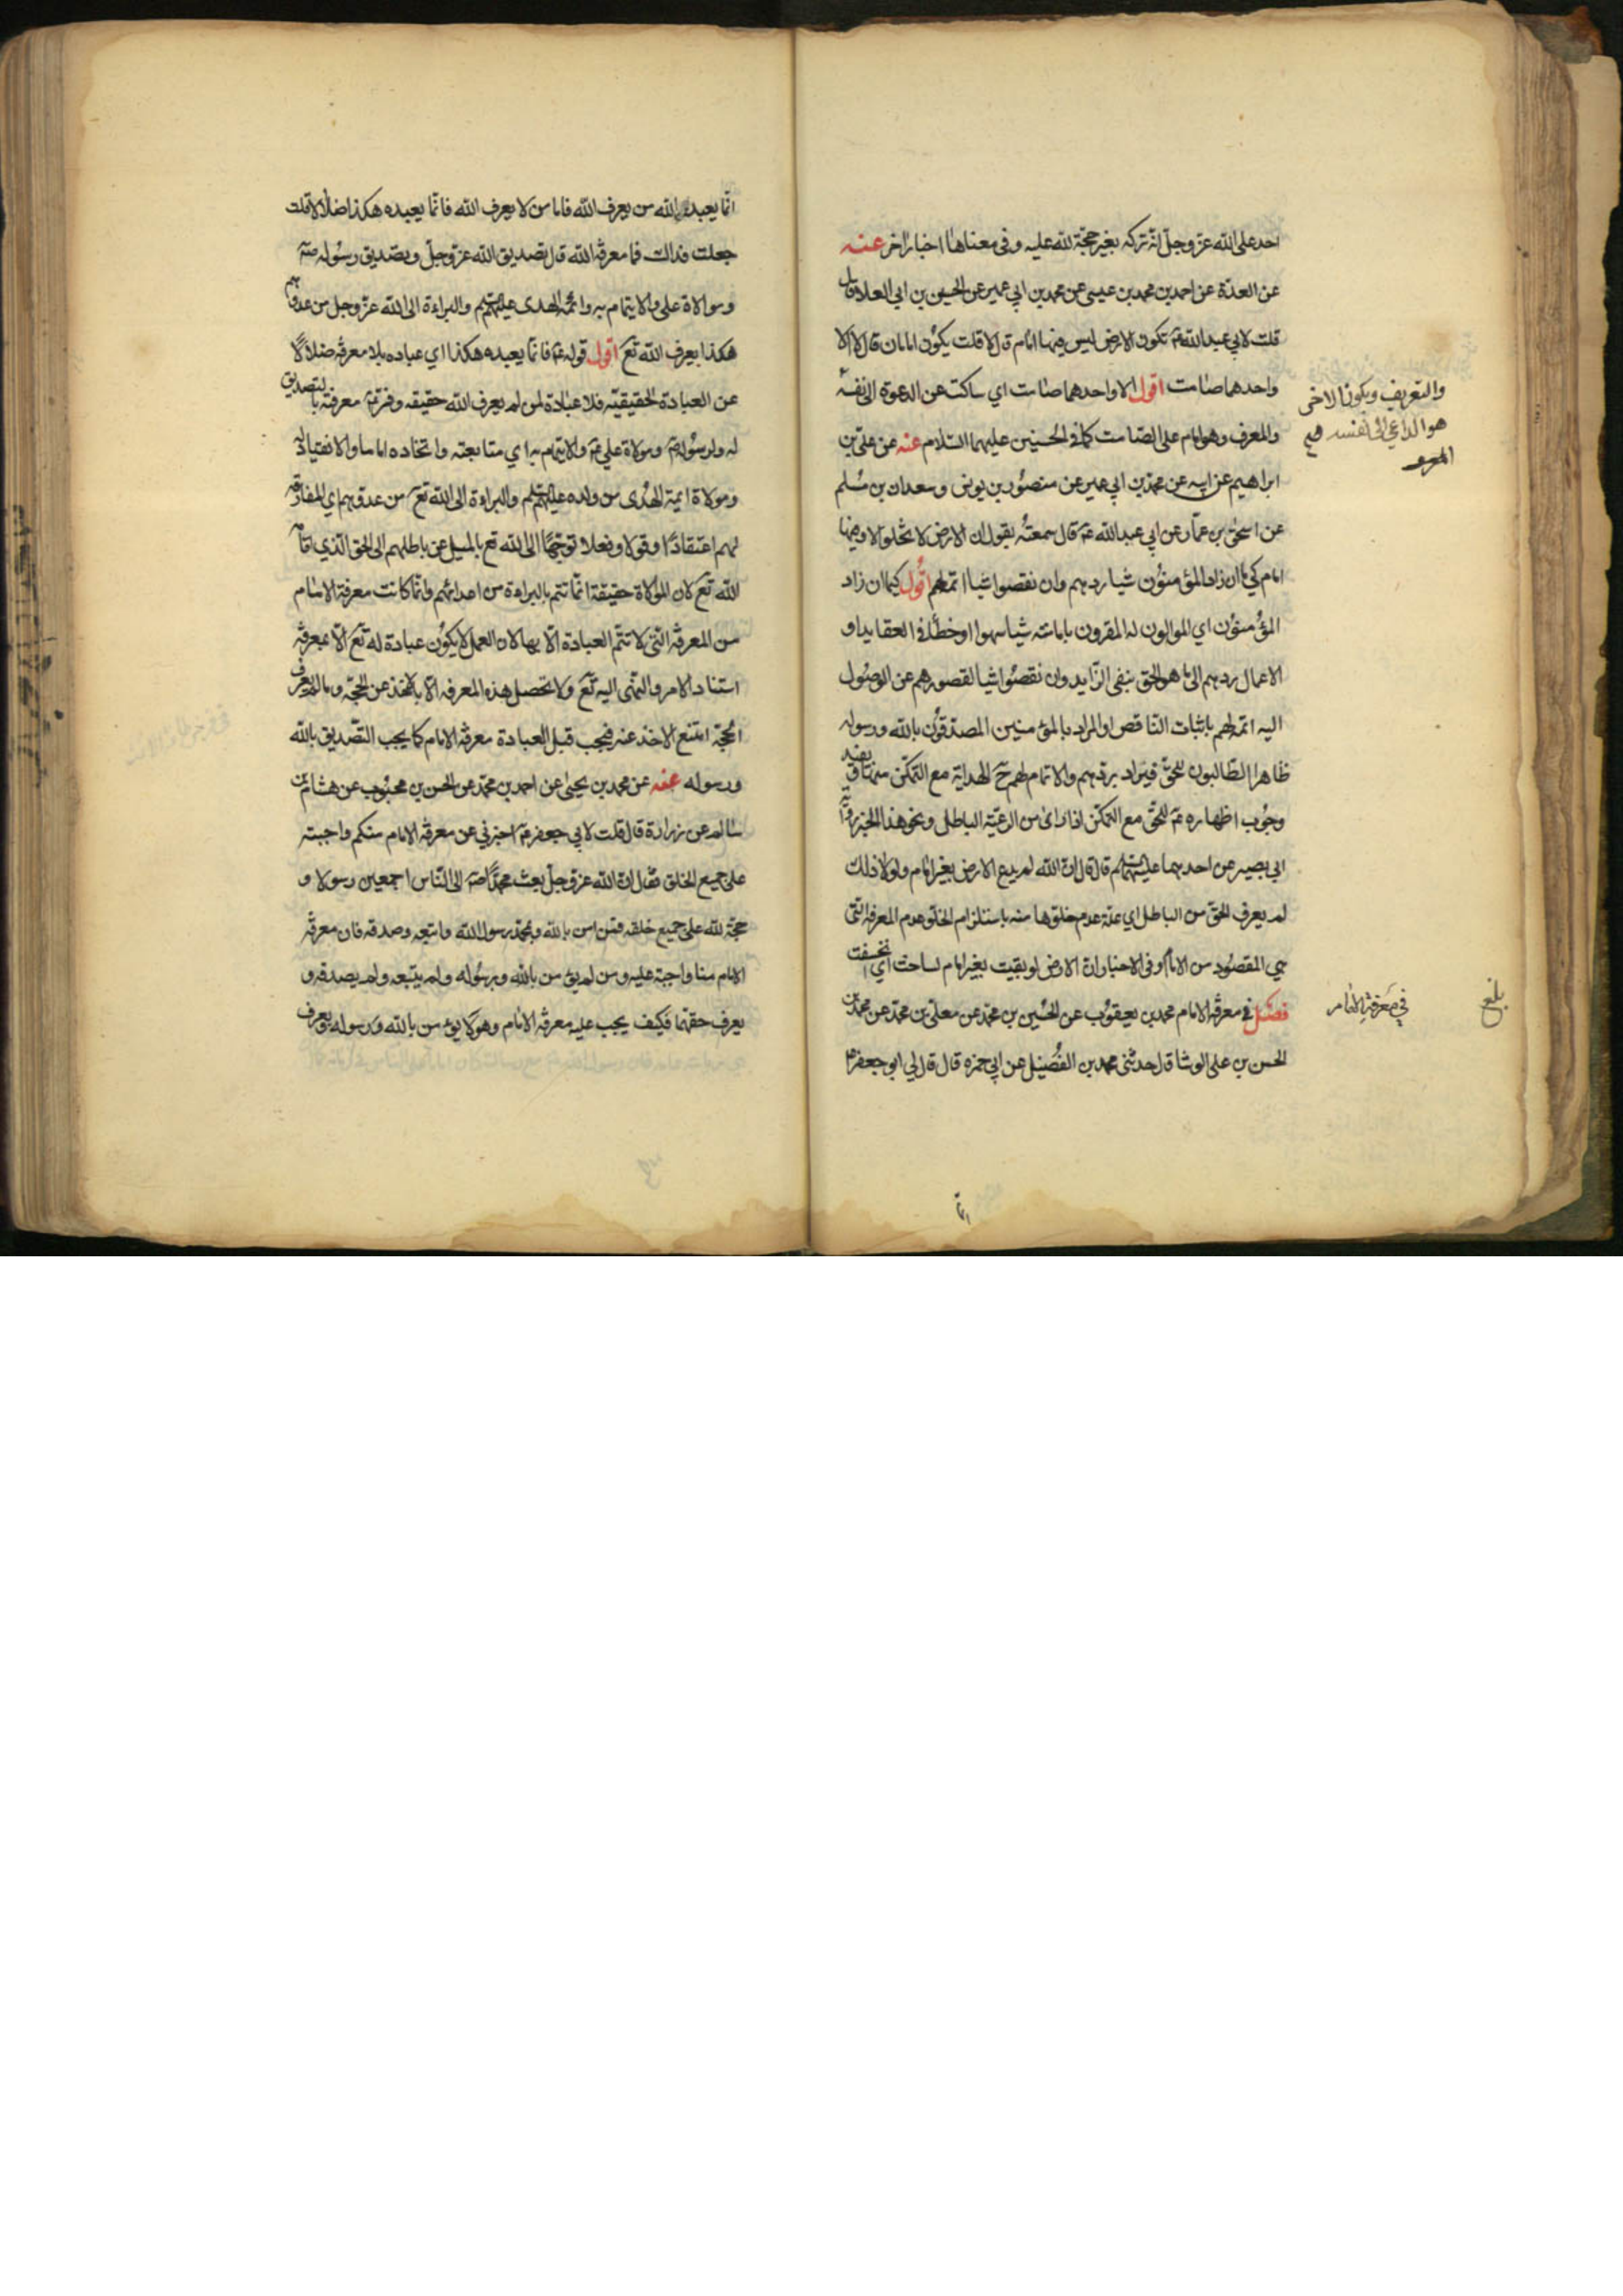 احد على الله عز وجل انه تركه بغير حجة لله عليه وفى معناها اخبار اخر عنه
عن العدة عن احمد بن محمد بن عيسى عن محمد بن ابي عمير عن الحسين بن ابي العلا قال
قلت لابي عبد الله عم تكون الارض ليس فيها امام قال لا قلت يكون امامان قال لا الا
واحدهما صامت اقول الا واحدهما صامت اي ساكت عن الدعوة الى نفسه
والتعريف ويكون الاخر
هو الداعي الى نفسه
والمعرف وهو امام على الصامت كما في الحسنين عليهما السلام عنه عن علي بن
ابراهيم عن ابيه عن محمد بن ابي عمير عن منصور بن يونس وسعدان بن مسلم
عن اسحق بن عمار عن ابي عبد الله عم قال سمعته يقول ان الارض لا تخلو الا وفيها
امام كي ما ان زاد المؤمنون شيا ردهم وان نقصوا شيا اتمه لهم اقول كيما ان زاد
المؤمنون اي الموالون له المقرون بامامته شيا سهوا او خطأ فى العقايد او
الاعمال ردهم الى ما هو الحق بنفى الزايد وان نقصوا شيا لقصورهم عن الوصول
اليه اتمه لهم باثبات الناقص او المراد بالمؤمنين المصدقون بالله ورسوله
ظاهرا الطالبون للحق فيراد بردهم والاتمام لهم ح الهداية مع التمكن
وجوب اظهاره عم للحق مع التمكن اذا راى من الرعية الباطل ونحو هذا الخبر
ابي بصير عن احدهما عليهما السلم قال قال ان الله لم يدع الارض بغير امام ولولا ذلك
لم يعرف الحق من الباطل اي علة عدم خلوها منه باستلزام الخلو عدم المعرفة التى
هي المقصود من الامام وفى الاخبار ان الارض لو بقيت بغير امام لساخت اي انخسفت
فصل في معرفة الامام محمد بن يعقوب عن الحسين بن محمد عن معلى بن محمد عن
في معرفة الامام
بلغ
الحسن بن على الوشا قال حدثنى محمد بن الفضيل عن ابي حمزه قال قال لي ابو جعفر
انما
انما يعبد الله من يعرف الله فاما من لا يعرف الله فانما يعبده هكذا ضلالا قلت
جعلت فداك فما معرفة الله قال تصديق الله عز وجل وتصديق رسوله صم
وموالاة على والايتمام به وائمة الهدى عليهم السلم والبراءة الى الله عز وجل من عدوهم
هكذا يعرف الله تع اقول قوله عم فانما يعبده هكذا اي عباده بلا معرفة ضلالا
عن العبادة الحقيقيه فلا عبادة لمن لم يعرف الله حقيقه وفسر عم معرفته بالتصديق
له ولرسوله صم وموالاة علي عم والايتمام به اي متابعته واتخاذه اماما والانقياد
وموالاة ايمة الهدى من ولده عليهم السلم والبراءة الى الله تع من عدوهم اي المفارقة
لهم اعتقادا وقولا وفعلا توجها الى الله تع بالميل عن باطلهم الى الحق الذي
الله تع لان الموالاة حقيقة انما تتم بالبراءة من اعدائهم وانما كانت معرفة الامام
من المعرفة التى لا تتم العبادة الا بها لان العمل لا يكون عبادة له تع الا بمعرفة
استناد الامر والنهى اليه تع ولا تحصل هذه المعرفه الا بالاخذ عن الحجة وما لم يعرف
الحجة امتنع الاخذ عنه فيجب قبل العبادة معرفة الامام كما يجب التصديق بالله
ورسوله عنه عن محمد بن يحيى عن احمد بن محمد عن الحسن بن محبوب عن هشام بن
سالم عن زرارة قال قلت لابي جعفر عم اخبرني عن معرفة الامام منكم واجبته
على جميع الخلق فقال ان الله عز وجل بعث محمدا صم الى الناس اجمعين رسولا و
حجة لله على جميع خلقه فمن امن بالله وبمحمد رسول الله واتبعه وصدقه فان معرفة
الامام منا واجبة عليه ومن لم يؤمن بالله وبرسوله ولم يتبعه ولم يصدقه و
يعرف حقهما فكيف يجب عليه معرفة الامام وهو لا يؤمن بالله ورسوله ويعرف